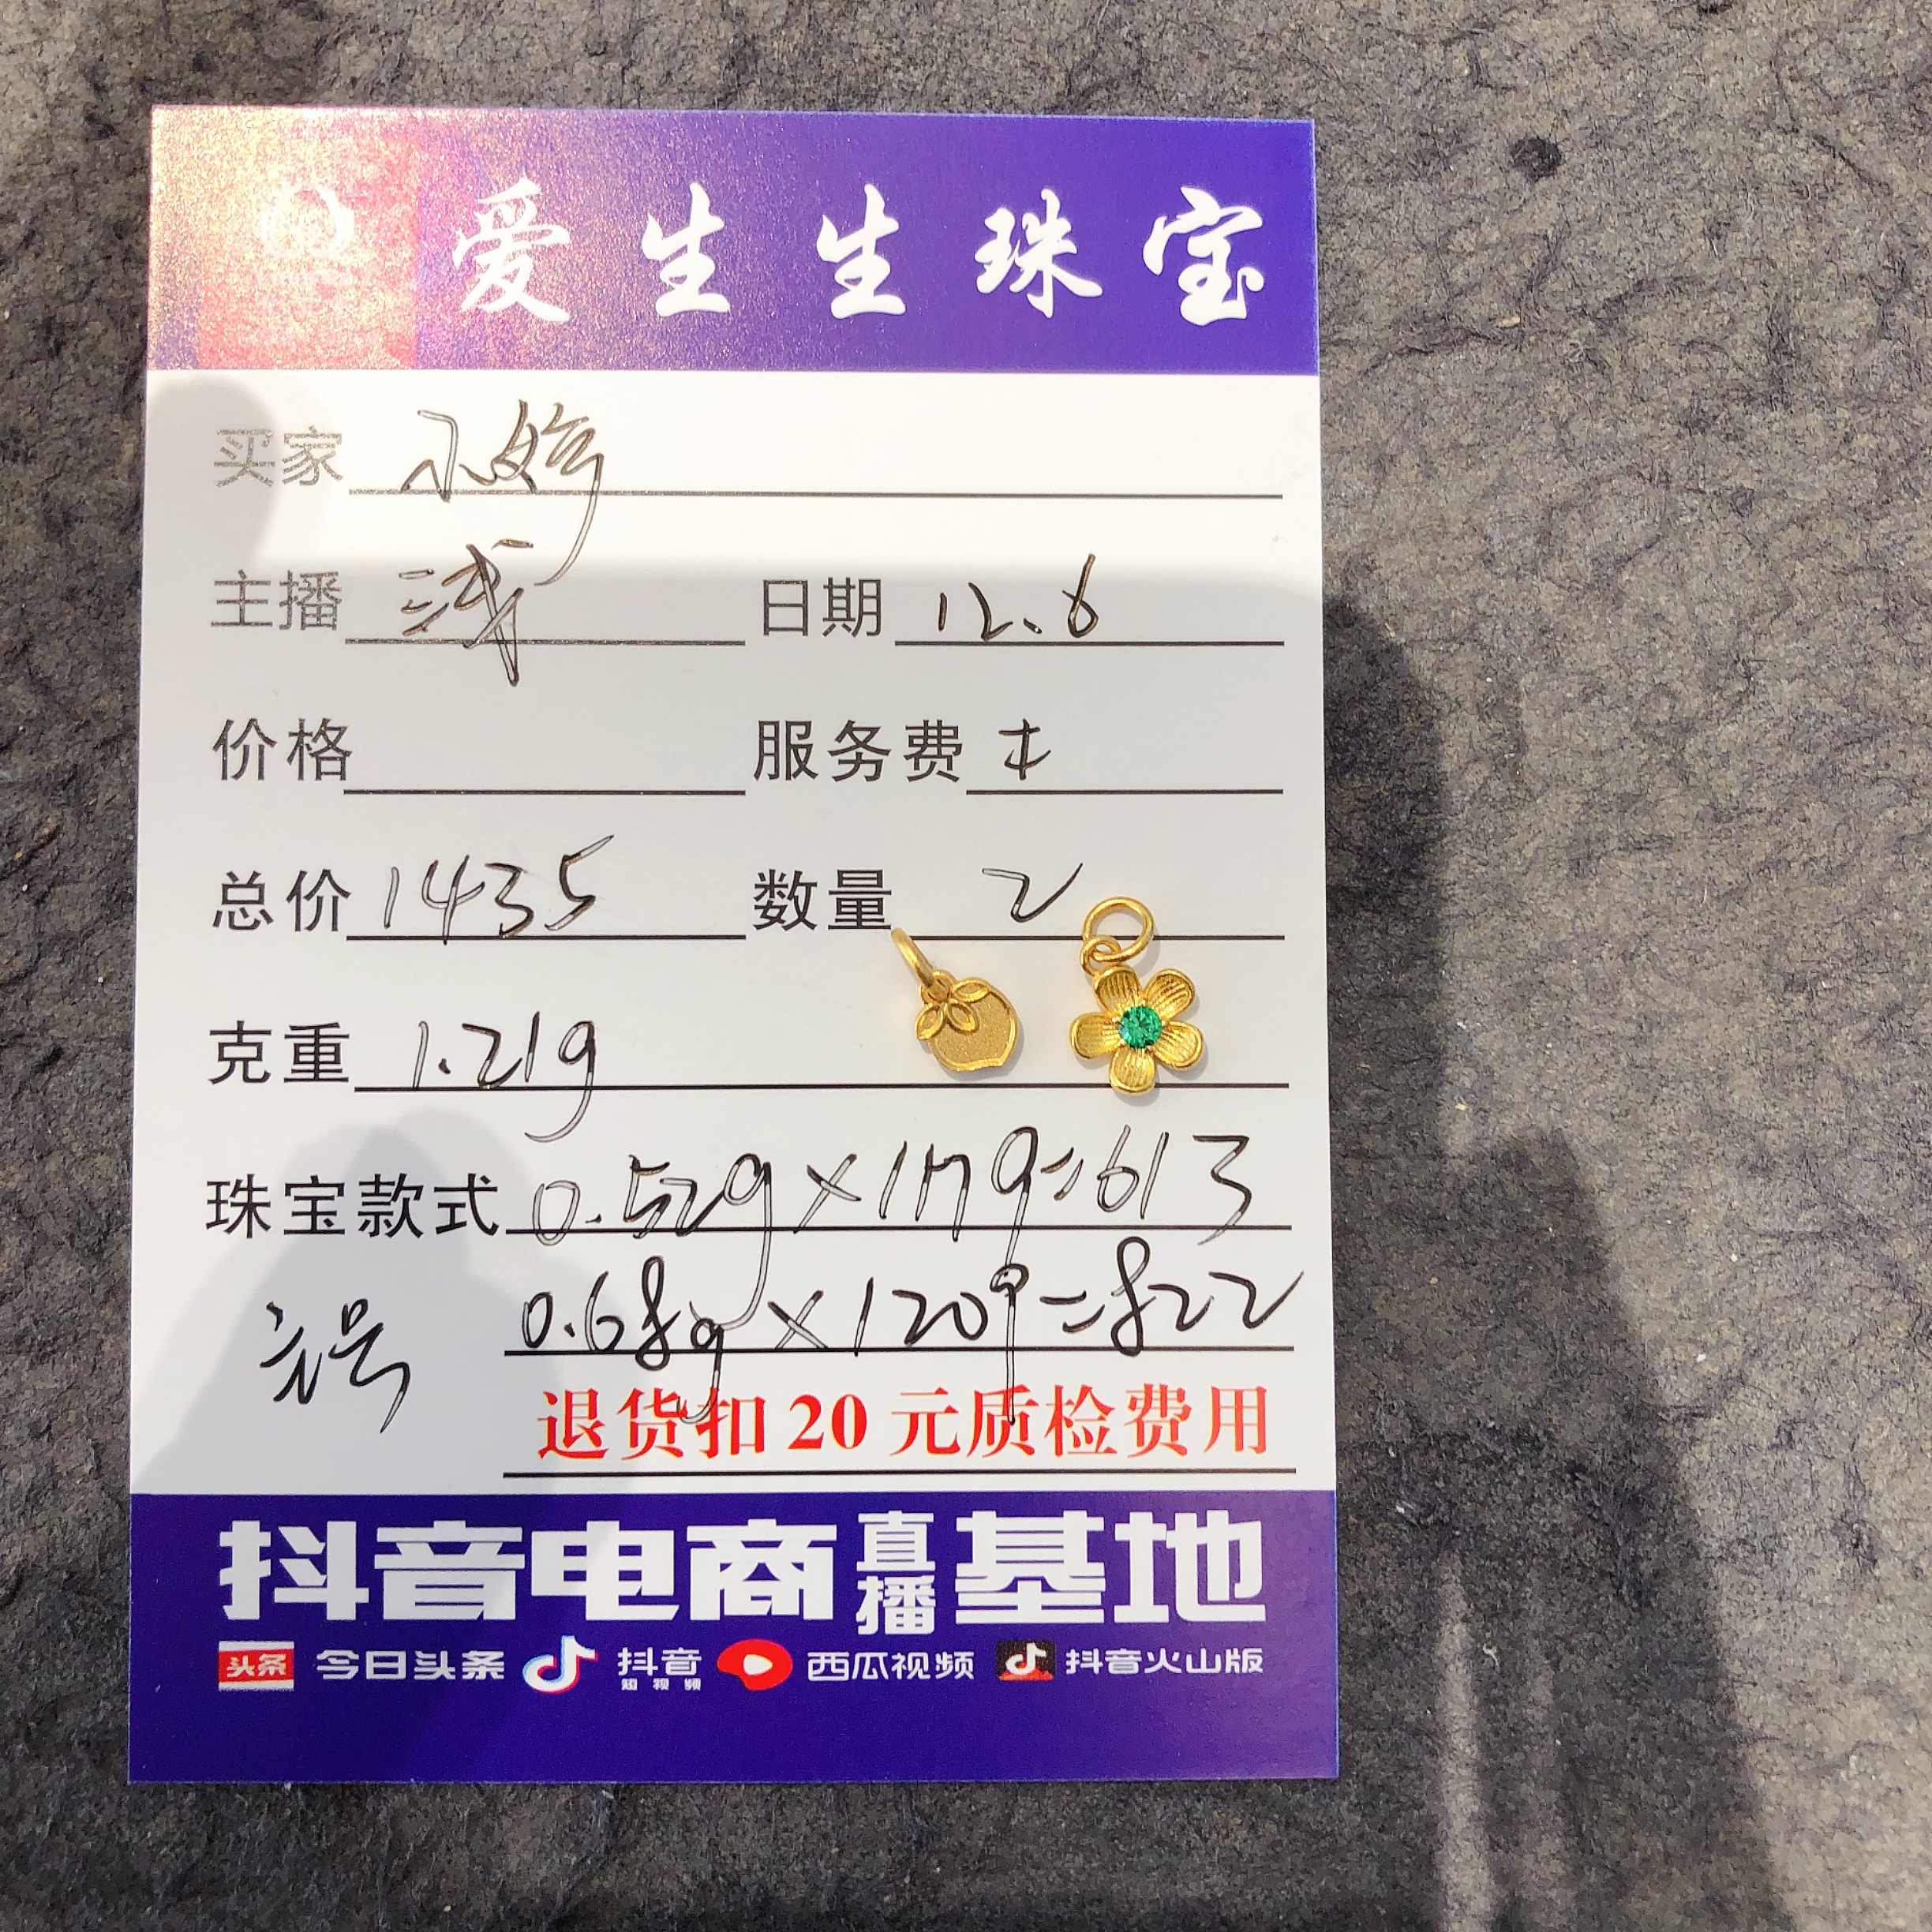 爱生生珠宝
买家 小婷
主播 浅 日期 12.6
价格 服务费
总价 1435 数量 2
克重 1.21g
珠宝款式 0.52g×1179=613
0.68g×1209=822
退货扣20元质检费用
抖音电商直播基地
头条 今日头条 抖音短视频 西瓜视频 抖音火山版